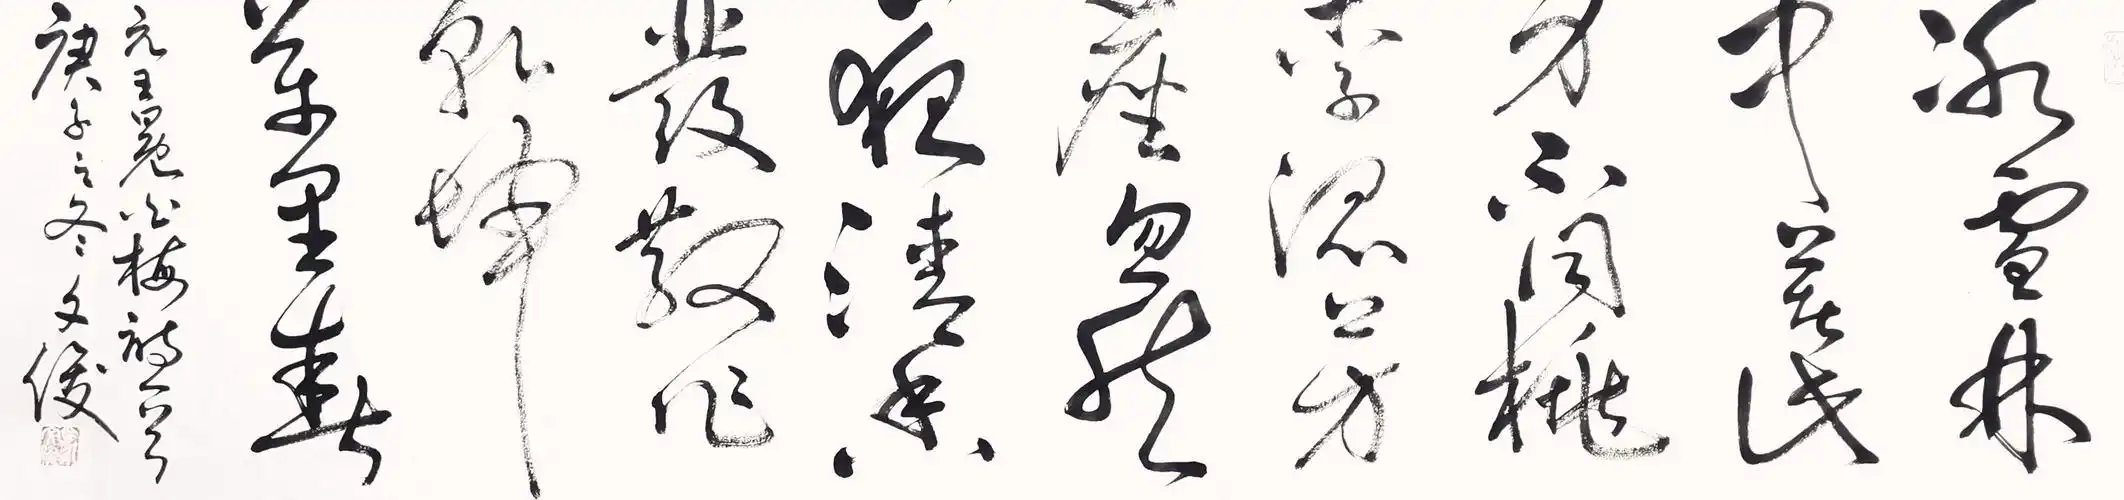 冰雪林
中著此
身不同桃
李混芳
塵忽然
一夜清香
發散作
乾坤
萬里春
元王冕白梅詩一首
庚子之冬文俊